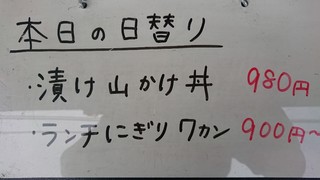 本日の日替り
・漬け山かけ丼 980円
・ランチにぎり 7カン 900円~